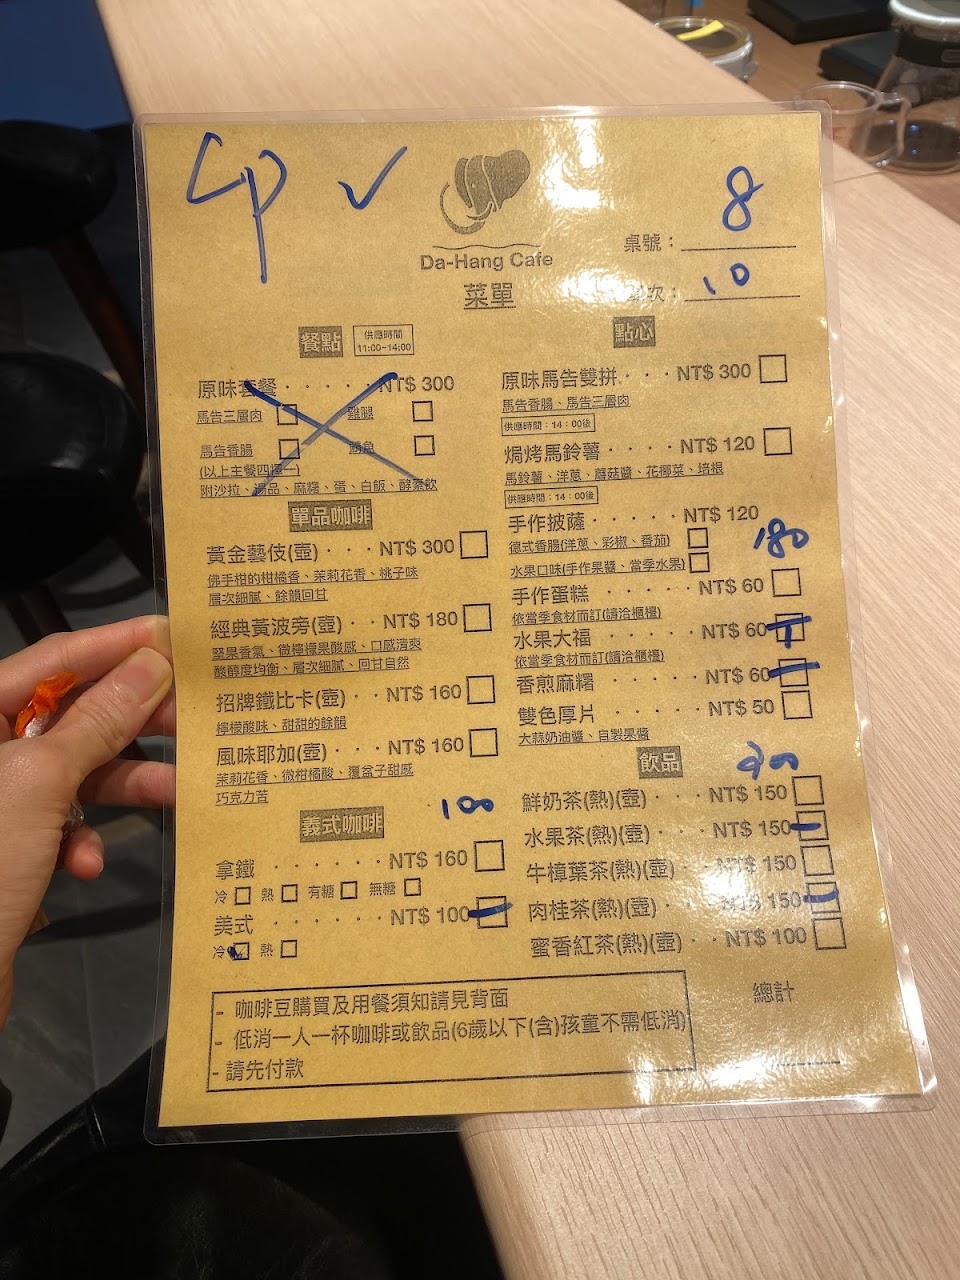 4p ✓
8
Da-Hang Cafe
桌號：
10
菜單
餐點
供應時間
11:00~14:00
原味套餐 · · · · · NT$ 300
馬告三層肉 □ 雞腿 □
馬告香腸 □ □
(以上主餐四擇一)
附沙拉、湯品、麻糬、蛋、白飯、酵素飲
單品咖啡
黃金藝伎(壺) · · · NT$ 300 □
佛手柑的柑橘香、茉莉花香、桃子味
層次細膩、餘韻回甘
經典黃波旁(壺) · · NT$ 180 □
堅果香氣、微檸檬果酸感、口感清爽
酸醇度均衡、層次細膩、回甘自然
招牌鐵比卡(壺) · · NT$ 160 □
檸檬酸味、甜甜的餘韻
風味耶加(壺) · · · NT$ 160 □
茉莉花香、微柑橘酸、覆盆子甜感
巧克力苦
100
義式咖啡
拿鐵 · · · · · · NT$ 160 □
冷 □ 熱 □ 有糖 □ 無糖 □
美式 · · · · · · NT$ 100 □
冷 □ 熱 □
點心
原味馬告雙拼 · · · NT$ 300 □
馬告香腸、馬告三層肉
供應時間：14：00後
焗烤馬鈴薯 · · · · NT$ 120 □
馬鈴薯、洋蔥、蘑菇醬、花椰菜、培根
供應時間：14：00後
手作披薩 · · · · · NT$ 120
德式香腸(洋蔥、彩椒、番茄) □
180
水果口味(手作果醬、當季水果) □
手作蛋糕 · · · · · NT$ 60 □
依當季食材而訂(請洽櫃檯)
水果大福 · · · · · NT$ 60 □
依當季食材而訂(請洽櫃檯)
香煎麻糬 · · · · · NT$ 60 □
雙色厚片 · · · · · NT$ 50 □
大蒜奶油醬、自製果醬
飲品
鮮奶茶(熱)(壺) · · · NT$ 150 □
水果茶(熱)(壺) · · · NT$ 150 □
牛樟葉茶(熱)(壺) · · NT$ 150 □
肉桂茶(熱)(壺) · · · NT$ 150 □
蜜香紅茶(熱)(壺) · · NT$ 100 □
總計
- 咖啡豆購買及用餐須知請見背面
- 低消一人一杯咖啡或飲品(6歲以下(含)孩童不需低消)
- 請先付款